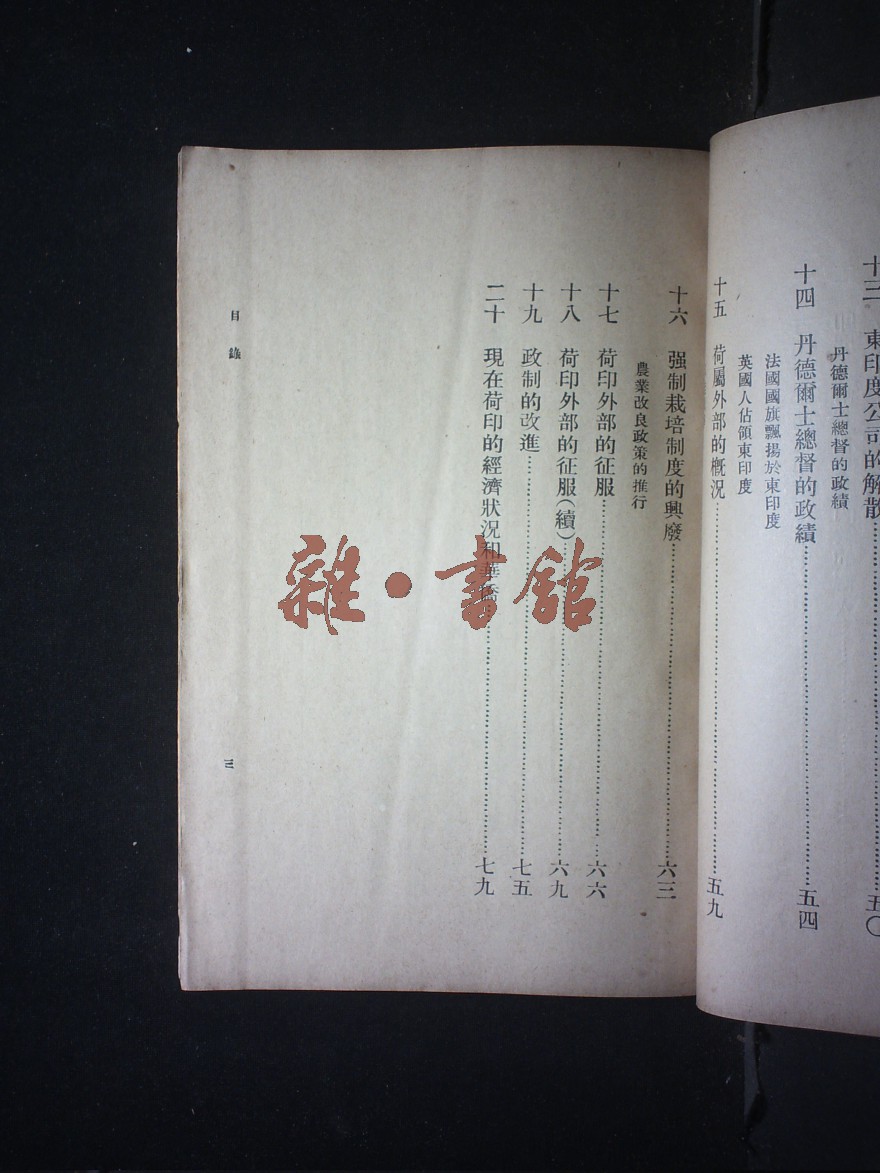 十三 東印度公司的解散……五〇
丹德爾士總督的政績
十四 丹德爾士總督的政績……五四
法國國旗飄揚於東印度
英國人佔領東印度
十五 荷屬外部的概況……五九
十六 强制栽培制度的興廢……六三
農業改良政策的推行
十七 荷印外部的征服……六六
十八 荷印外部的征服(續)……六九
十九 政制的改進……七五
二十 現在荷印的經濟狀況和華僑……七九
目錄
三
雜·書館